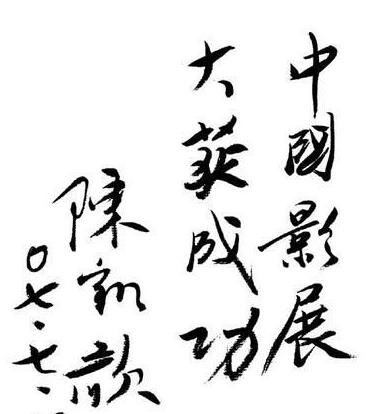 中國影展
大获成功
陳凱歌
〇七.七.